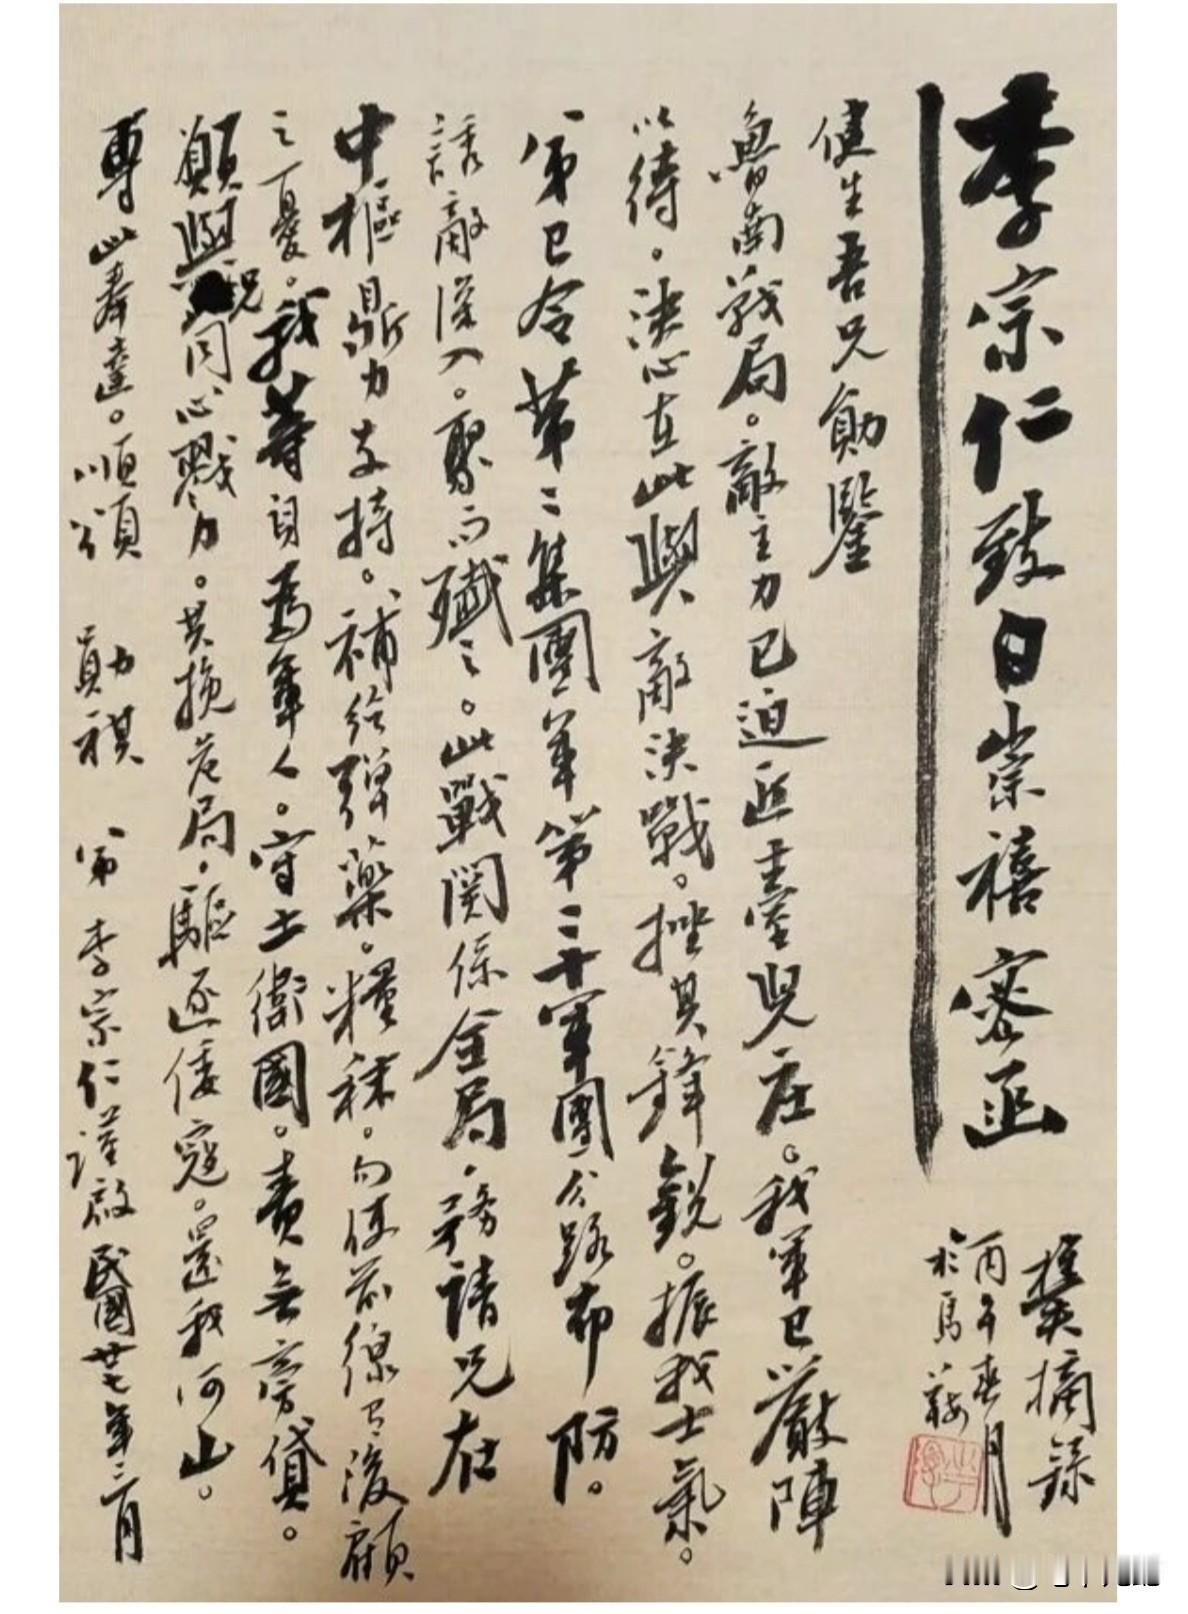 李宗仁致白崇禧密函
樊摘録
丙午春月
於馬鞍
健生吾兄勛鑒
魯南戰局。敵主力已迫近臺兒庄。我軍已嚴陣
以待。決心在此與敵決戰。挫其鋒銳。振我士氣。
弟已令第二集團軍第二十軍團分路布防。
誘敵深入。聚而殲之。此戰関係全局。務請兄在
中樞鼎力支持。補给弹藥。糧秣。勿使前線有後顧
之憂。我等身為軍人。守土衛國。責無旁貸。
願與兄同心戮力。共挽危局。驅逐倭寇。還我河山。
專此奉達。順頌 勛祺 弟李宗仁謹啟民國廿七年三月